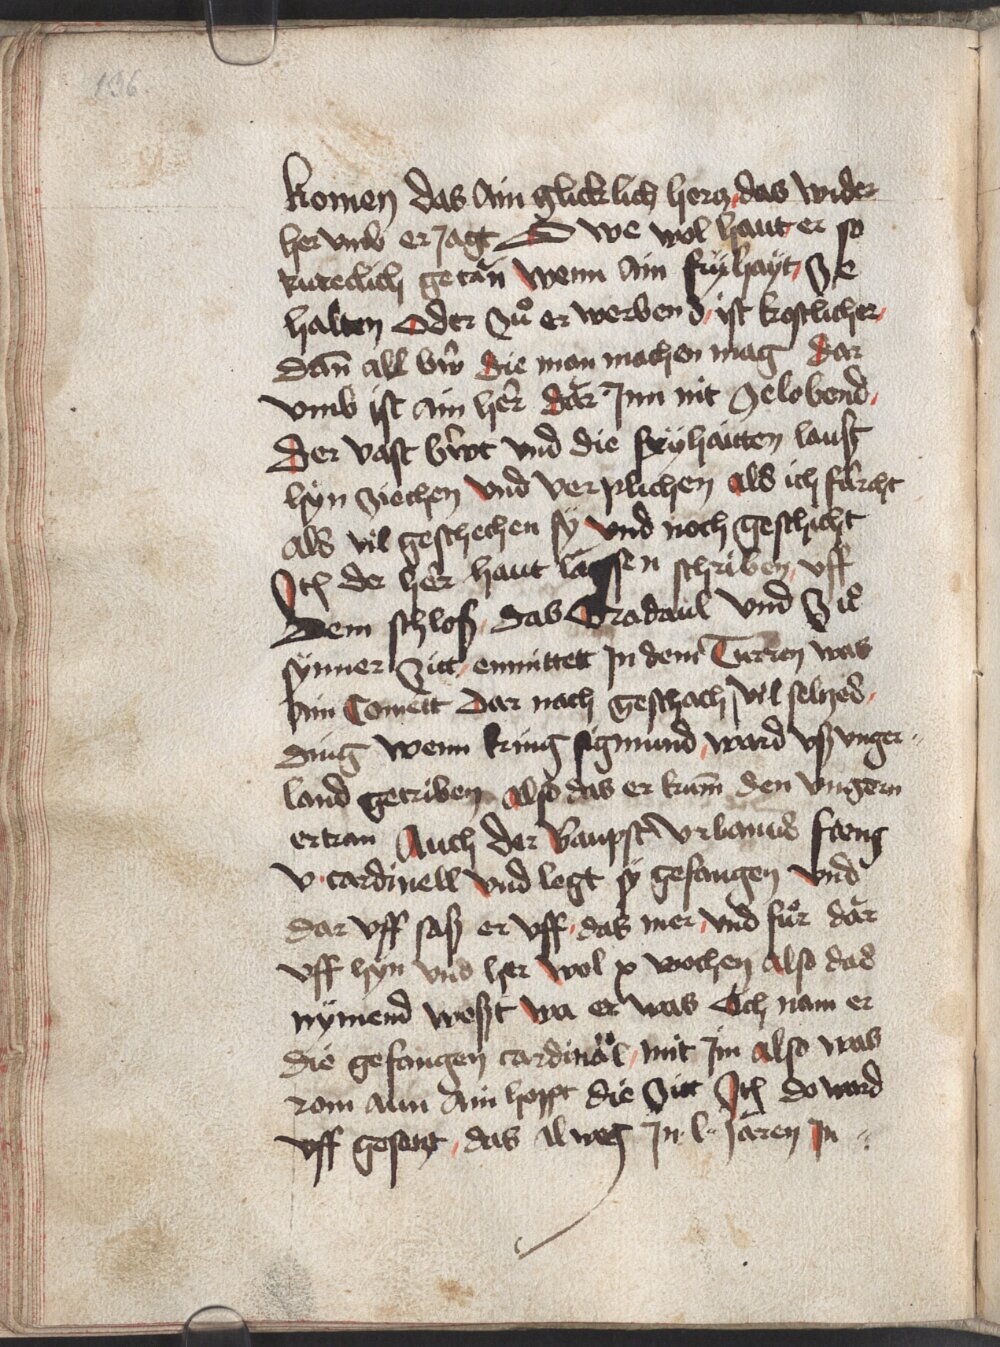 136.
komen das Ain glicklich herz das wider
her vmb er Jagt O we wol haut er so
kuteclich getän wenn Ain fryhayt ze
halten oder zů er werbend ist kostlicher
dan̄ all bŵ die man machen mag dar
vmb ist Ain her̄ där Jnn nit zelobend
der vast bŵt vnd die fryhaitten laust
hyn ziechen vnd verplichen als ich fürcht
als vil geschechen sy vnd noch geschicht
Itm̄ der her̄ haut lassen schriben vff
dem schloß das Gradaul vnd zů
synner zitt enmittett Jn dem Turren was
Ain Comett dar nach geschach vil selzed
ding wenn kung sigmund ward vß vnger
land getriben also das er kum̄ den vngern
ertran Auch der baupst vrbanus fieng
v cardinell vnd legt sy gefangen vnd
dar vff saß er vff das mer vnd fůr där
vff hyn vnd her wol x wochen also das
nymend weßt wa er was Och nam er
die gefangen cardinäl mit Jm also was
rom aun Ain hopt die zitt Itm̄ do ward
vff gesetzt das alweg Jn l Jaren Jn